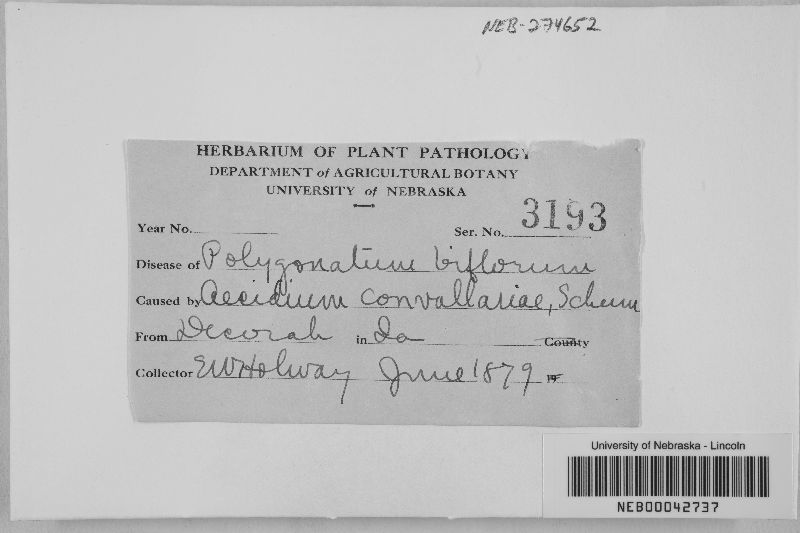 NEB-274652
HERBARIUM OF PLANT PATHOLOGY
DEPARTMENT of AGRICULTURAL BOTANY
UNIVERSITY of NEBRASKA
Year No. Ser. No. 3193
Disease of Polygonatum biflorum
Caused by Aecidium convallariae, Schum
From Decorah in Ia County
Collector EWHolway June 1879 19
University of Nebraska - Lincoln
NEB00042737